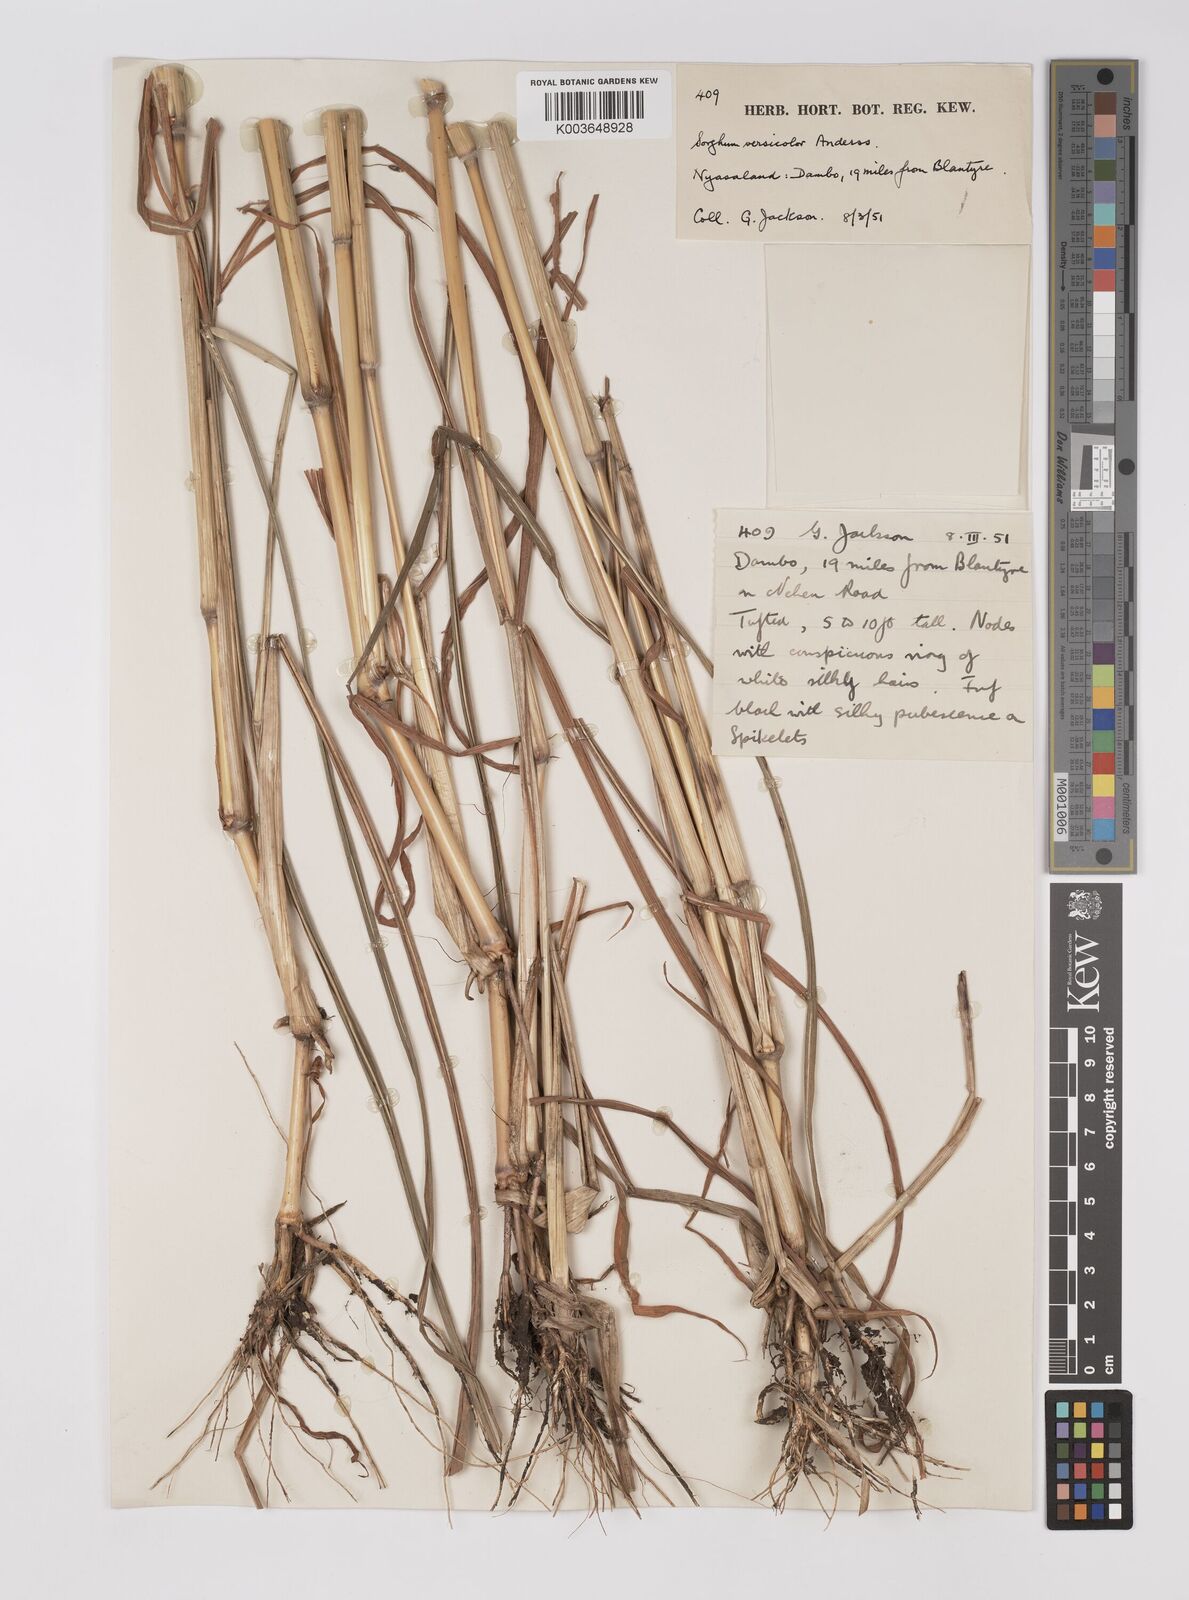 ROYAL BOTANIC GARDENS KEW
K003648928
409
HERB. HORT. BOT. REG. KEW.
Sorghum versicolor Anderss.
Nyasaland: Dambo, 19 miles from Blantyre.
Coll. G. Jackson. 8/3/51
409 G. Jackson 8.III.51
Dambo, 19 miles from Blantyre
Road
Tufted, 5 to 10ft tall. Nodes
with conspicuous ring of
white silky hairs. Inf
black with silky pubescence on
Spikelets
inches
centimeters
Density
Don Williams
M001006
Royal Botanic Gardens
Kew
copyright reserved
0 1 2 3 4 5 6 7 8 9 10
cm